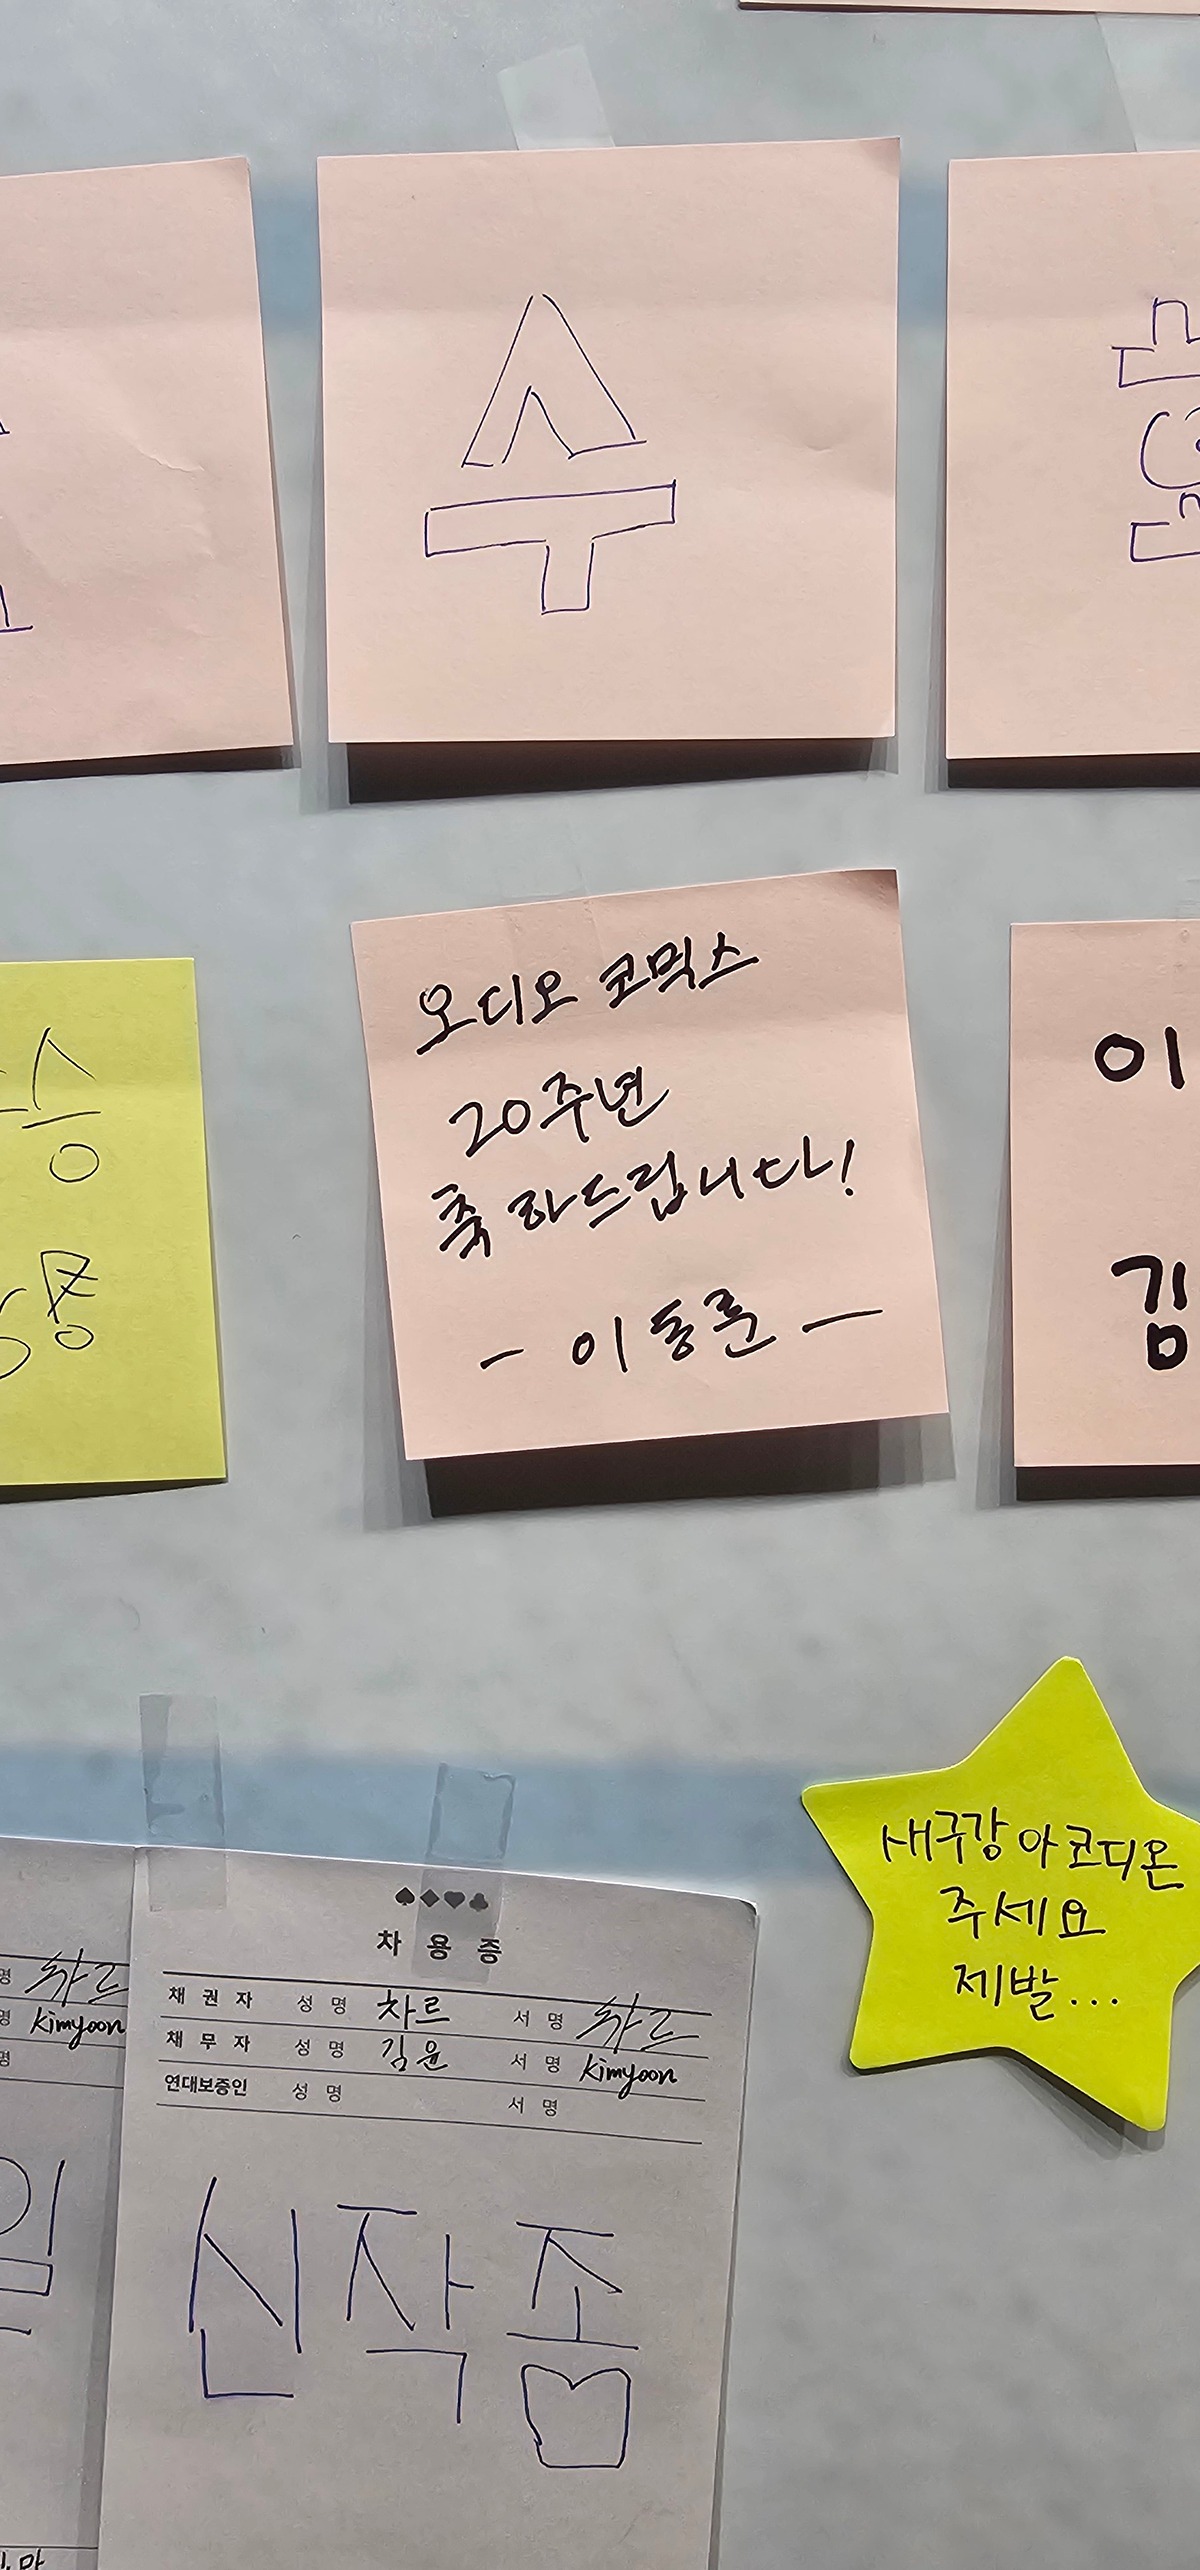 수
오디오 코믹스
20주년
축하드립니다!
- 이동훈 -
승
이
김
새구강 아코디온
주세요
제발...
차용증
채권자 성명 차르 서명 차르
채무자 성명 김윤 서명 Kimyoon
연대보증인 성명 서명
신작좀
명 차르
명 Kimyoon
명